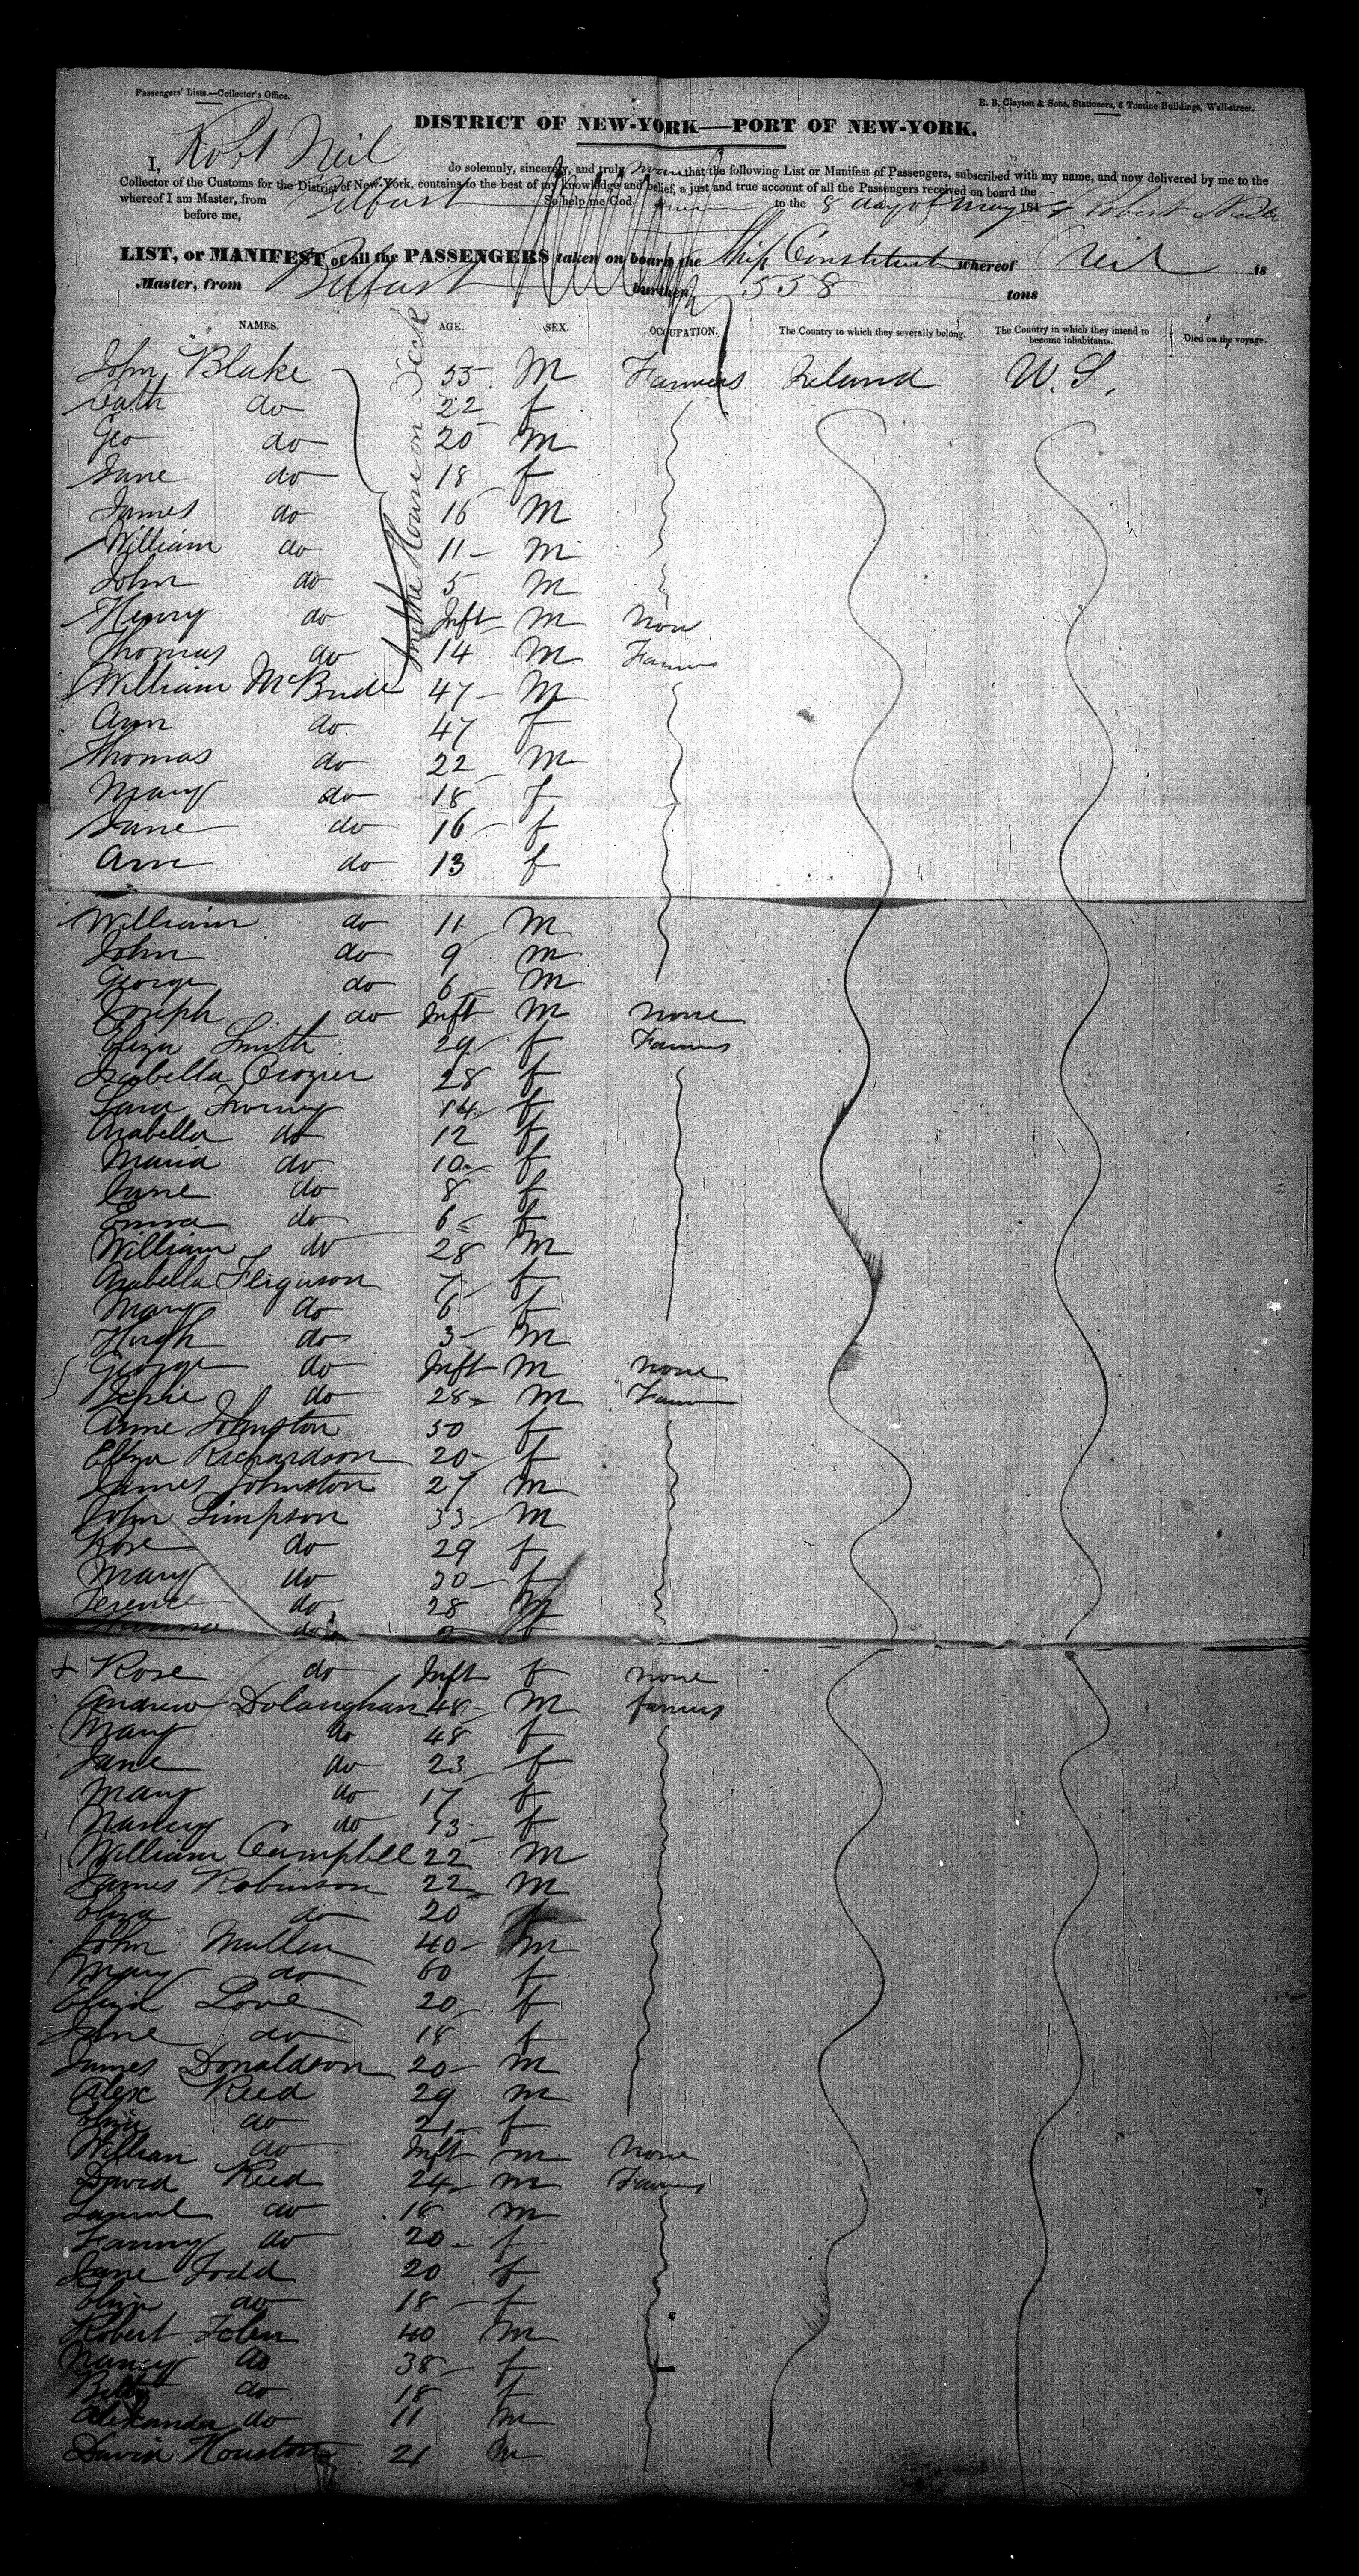 Passengers' Lists.—Collector's Office.
E. B. Clayton & Sons, Stationers, 6 Tontine Buildings, Wall-street.
DISTRICT OF NEW-YORK—PORT OF NEW-YORK.
I, Robt Neil do solemnly, sincerely, and truly swear that the following List or Manifest of Passengers, subscribed with my name, and now delivered by me to the
Collector of the Customs for the District of New-York, contains to the best of my knowledge and belief, a just and true account of all the Passengers received on board the
whereof I am Master, from Belfast So help me God.
before me, to the 8 day of May 184 Robert Neill
LIST, or MANIFEST of all the PASSENGERS taken on board the Ship Constitution whereof Neil is
Master, from Belfast burthen 558 tons
NAMES. AGE. SEX. OCCUPATION. The Country to which they severally belong. The Country in which they intend to become inhabitants. Died on the voyage.
In the House on Deck
John Blake 55 M Farmers Ireland U.S.
Cath do 22 f
Geo do 20 M
Jane do 18 f
James do 16 M
William do 11 M
John do 5 M
Henry do Inft M Non
Thomas do 14 M Farmers
William McBride 47 M
Ann do 47 f
Thomas do 22 M
Mary do 18 f
Jane do 16 f
Ann do 13 f
William do 11 M
John do 9 M
George do 6 M
Joseph do Inft M none
Eliza Smith 29 f Farmers
Isabella Crozier 28 f
Sara 14 f
Arabella do 12 f
Maria do 10 f
Jane do 8 f
Emma do 6 f
William do 28 M
Arabella Ferguson 7 f
Mary do 6 f
Hugh do 3 M
George do Inft M none
do 28 M Farmer
Anne Johnston 50 f
Eliza Richardson 20 f
James Johnston 27 M
John Simpson 33 M
Rose do 29 f
Mary do 30 f
Terence do 28 M
do f
+ Rose do Inft f none
Andrew Dolaughan 48 M farmers
Mary do 48 f
Jane do 23 f
Mary do 17 f
Nancy do 13 f
William Campbell 22 M
James Robinson 22 M
Eliza do 20 f
John Mullen 40 M
Mary do 60 f
Eliza Love 20 f
Jane do 18 f
James Donaldson 20 M
Alex Reed 29 M
Eliza do 21 f
William do Inft M none
David Reed 24 M Farmers
Samuel do 18 M
Fanny do 20 f
Jane Todd 20 f
Eliza do 18 f
Robert 40 M
Nancy do 38 f
Betty do 18 f
Alexander do 11 M
David Houston 21 M